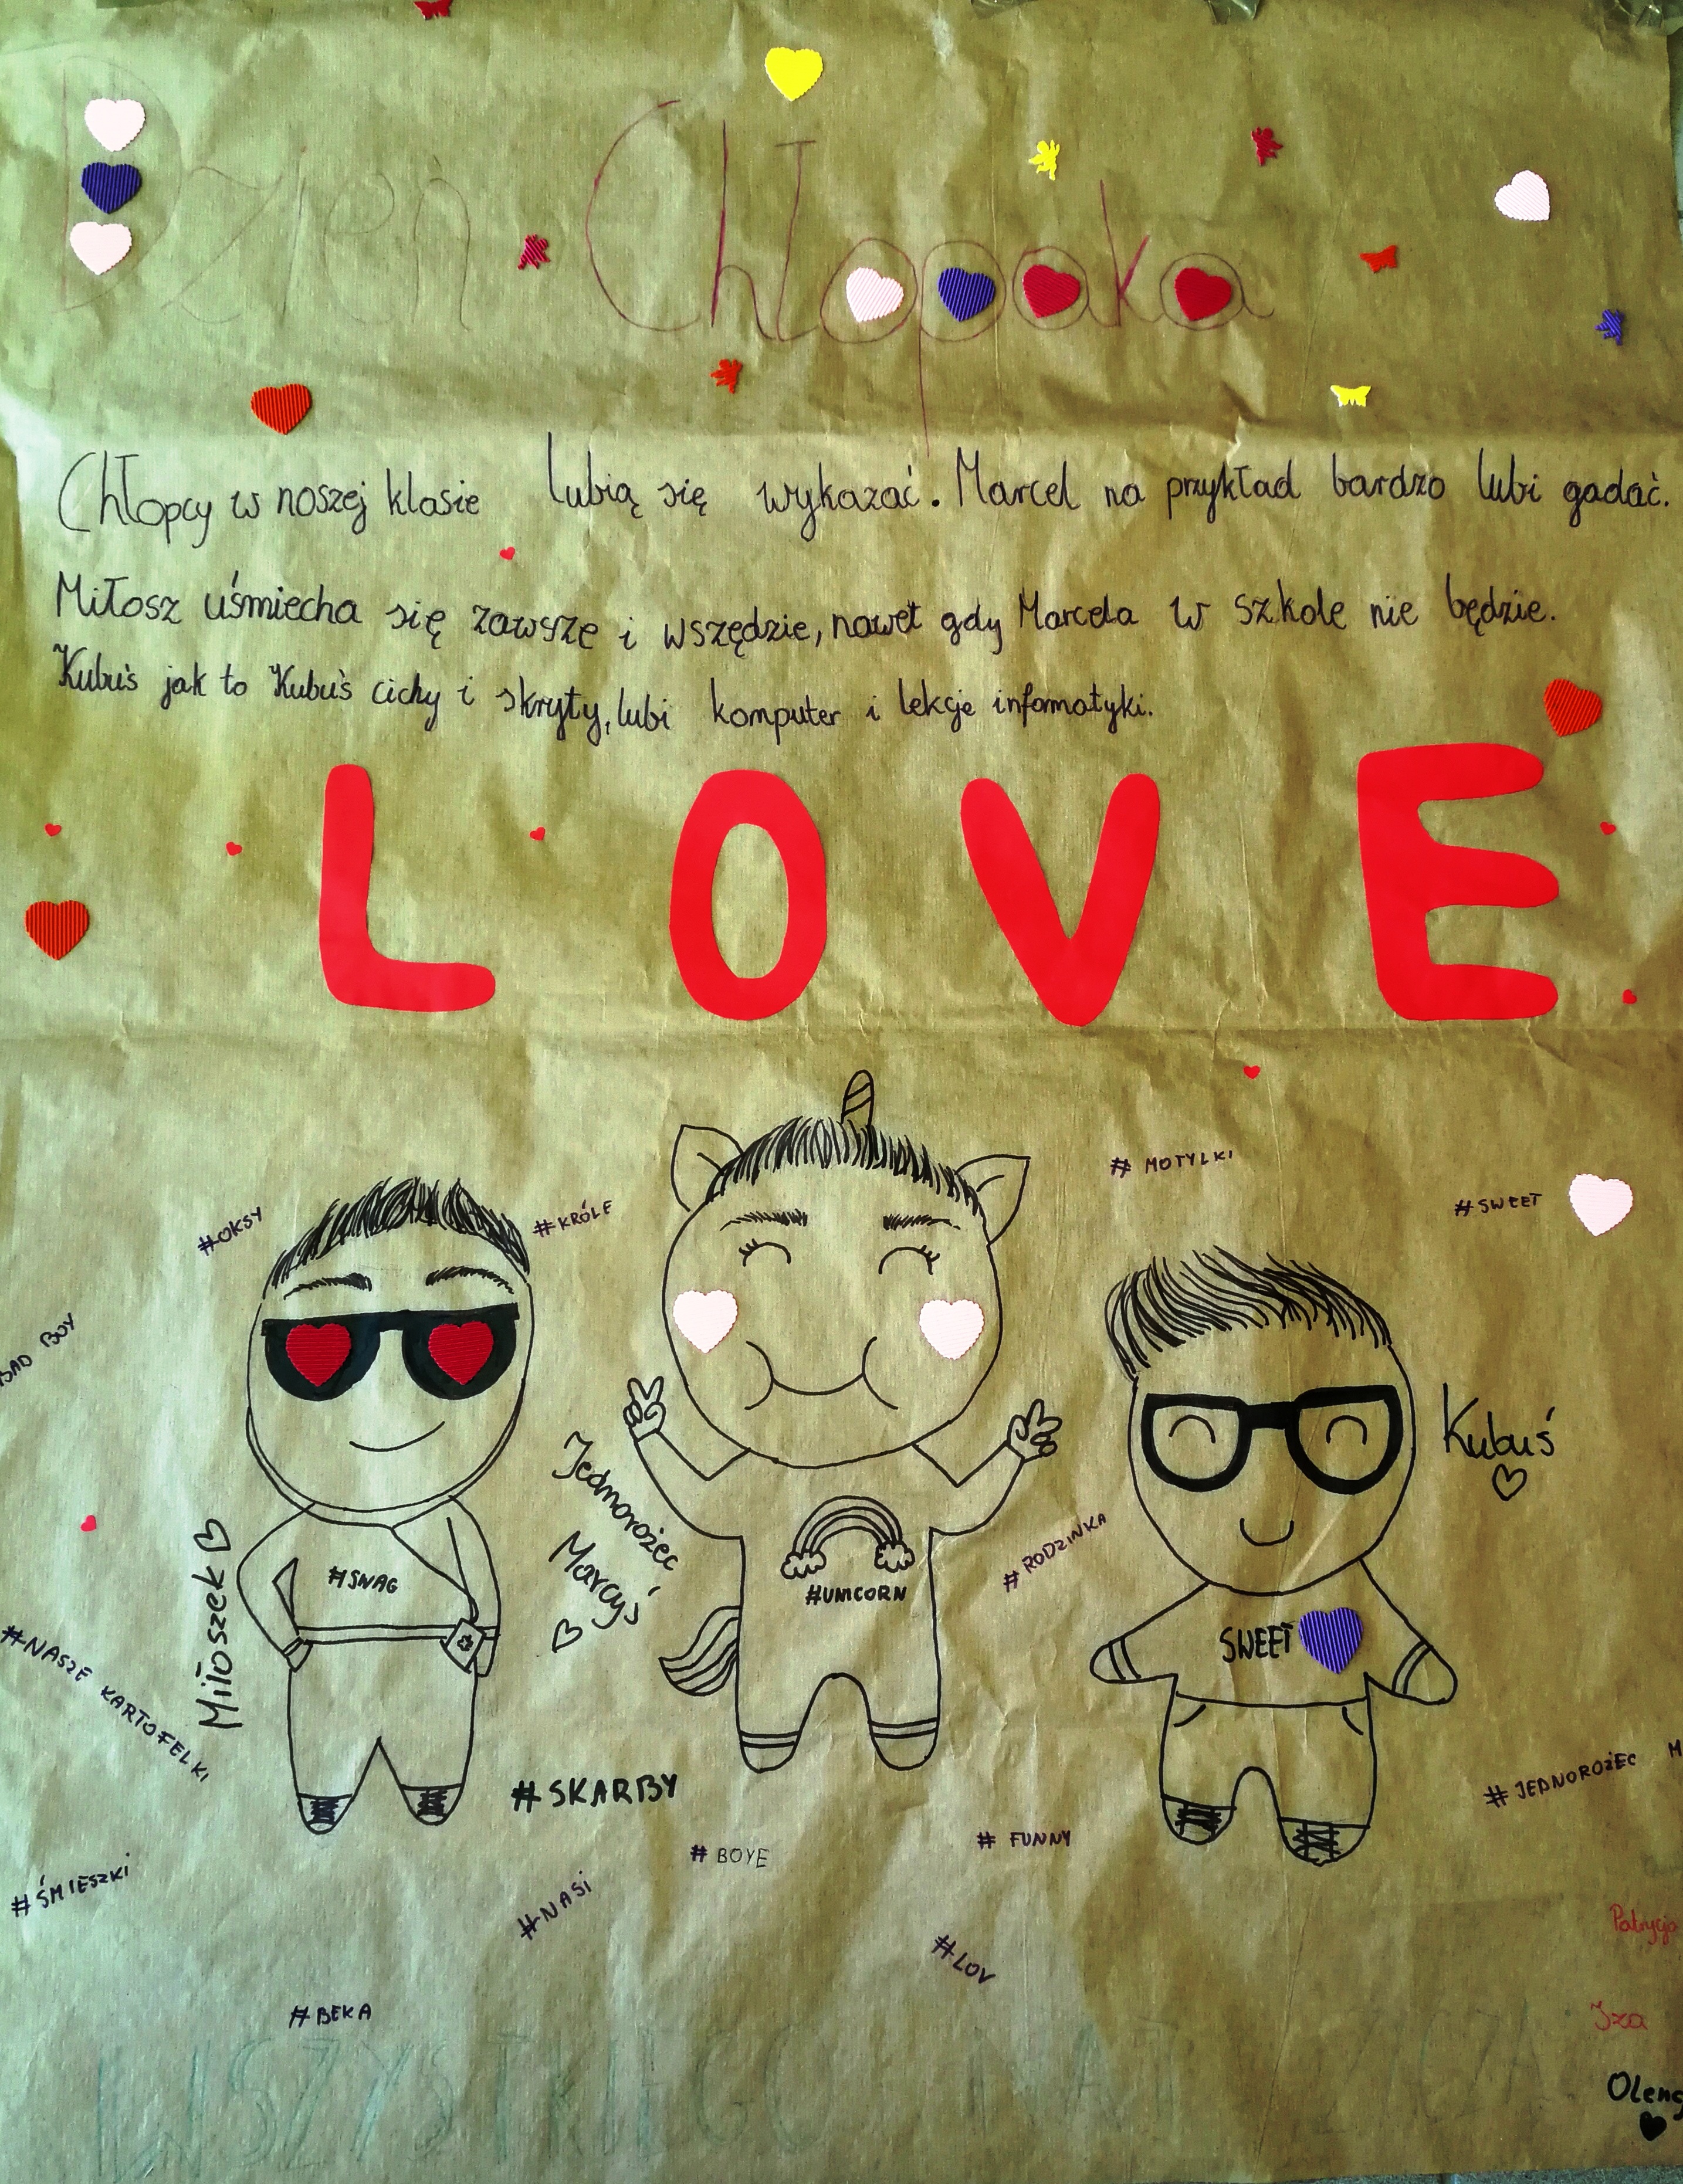 Dzień Chłopaka
Chłopcy w naszej klasie lubią się wykazać. Marcel na przykład bardzo lubi gadać.
Miłosz uśmiecha się zawsze i wszędzie, nawet gdy Marcela w szkole nie będzie.
Kubuś jak to Kubuś cichy i skryty, lubi komputer i lekcje informatyki.
LOVE
# MOTYLKI
#OKSY
#KRÓLE
#SWEET
BAD BOY
Kubuś
Jednorożec
Marcyś
Miłoszek
#SWAG
#UNICORN
#RODZINKA
SWEET
#NASZE KARTOFELKI
#SKARBY
#JEDNOROŻEC M
#BOYE
# FUNNY
#ŚMIESZKI
#NASI
Patrycja
#LOV
#BEKA
Iza
WSZYSTKIEGO NAJ